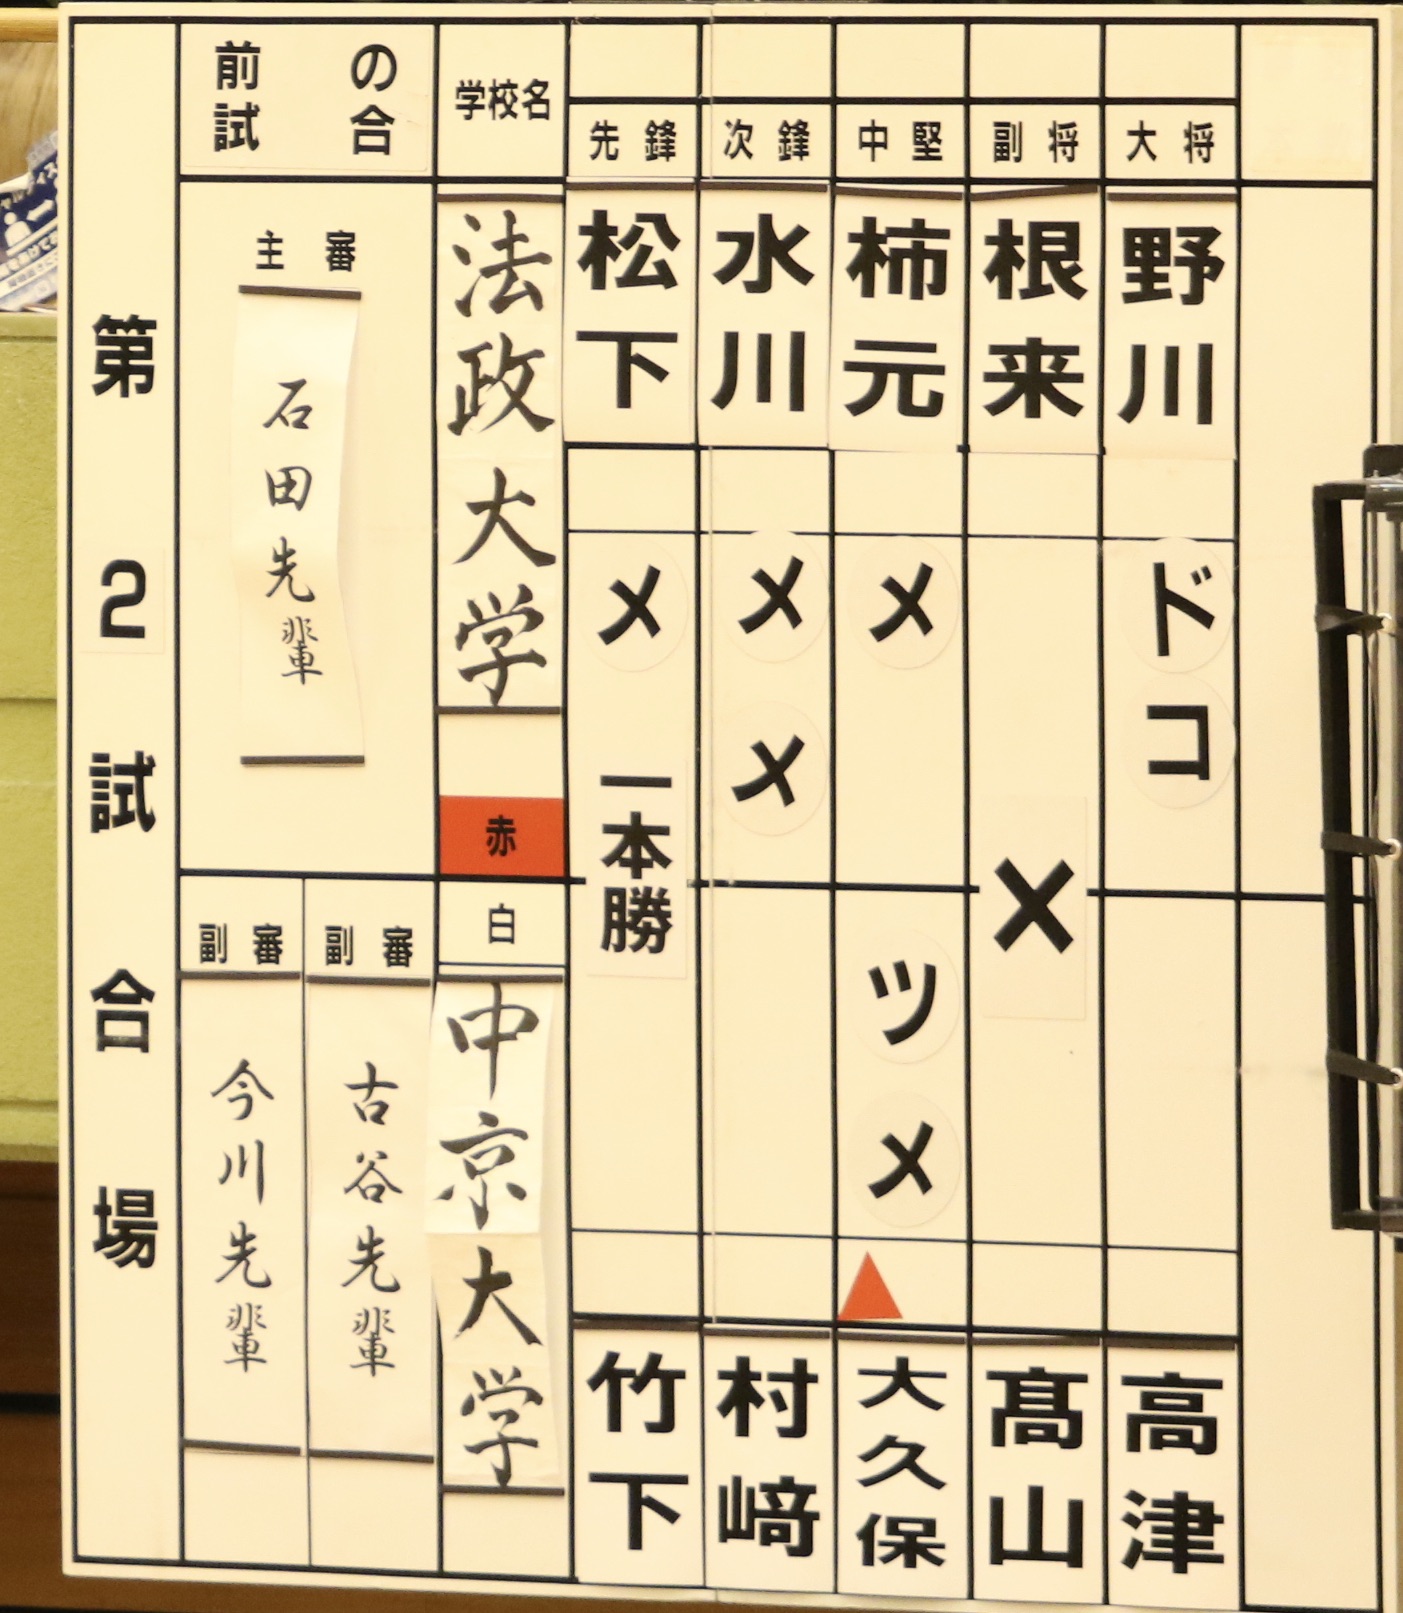 第2試合場
前の試合
主審
石田先輩
副審
今川先輩
副審
古谷先輩
学校名
法政大学
赤
白
中京大学
先鋒
松下
メ
一本勝
竹下
次鋒
水川
メ
メ
村﨑
中堅
柿元
メ
ツ
メ
▲
大久保
副将
根来
×
髙山
大将
野川
ド
コ
高津